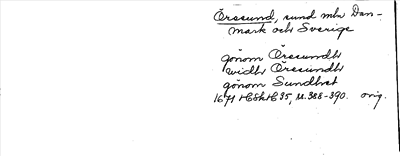 Öresund, sund mln Dan-
mark och Sverige
gönom Öresundh
widh Öresundh
gönom Sundhet
1671 HSH 35, s. 388-390. orig.